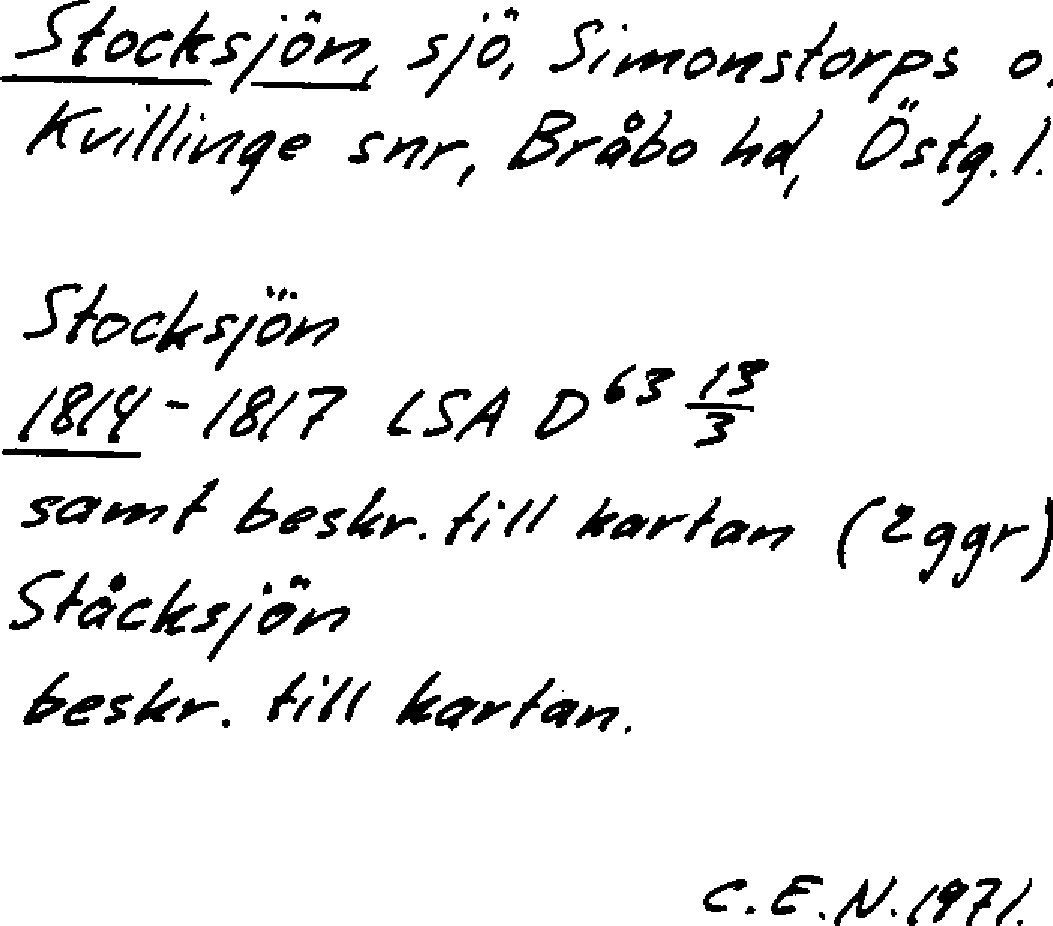 Stocksjön, sjö, Simonstorps o.
Kvillinge snr, Bråbo hd, Östg.l.
Stocksjön
1814-1817 LSA D⁶³ 13/3
samt beskr. till kartan (2ggr)
Ståcksjön
beskr. till kartan.
C.E.N.1971.